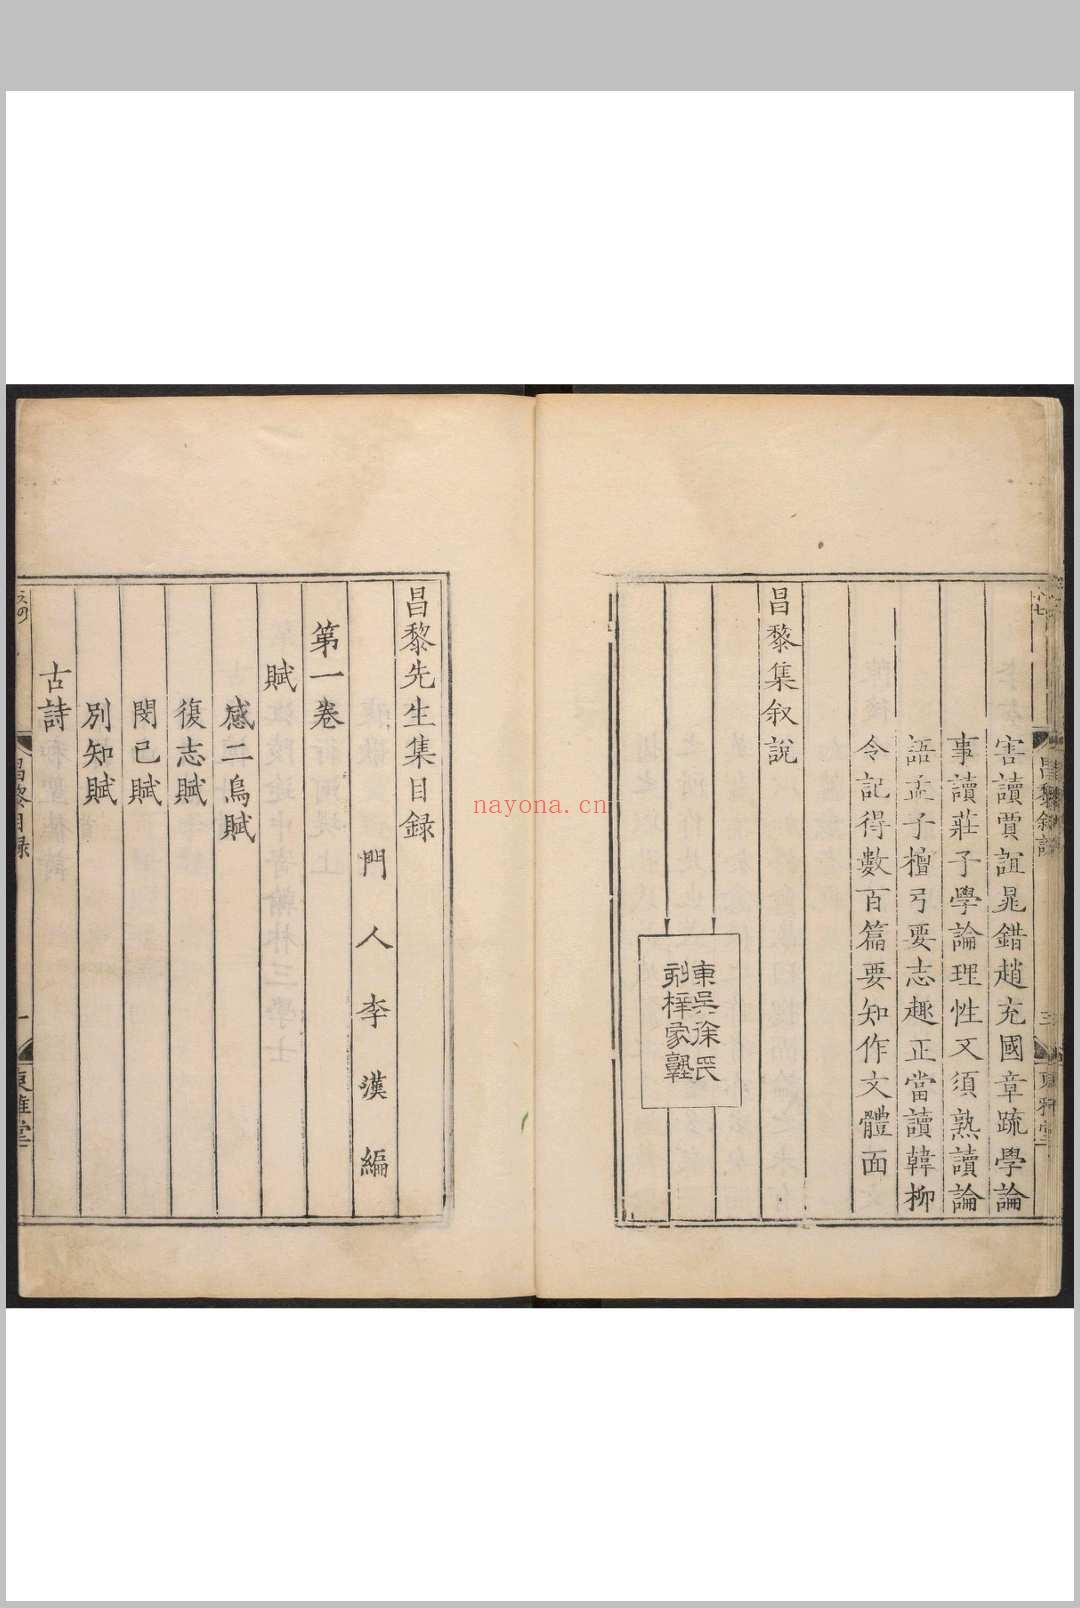 害讀賈誼晁錯趙充國章疏學論
事讀莊子學論理性又須熟讀論
語孟子檀弓要志趣正當讀韓柳
令記得數百篇要知作文體面
昌黎集叙說
東吳徐氏
刻梓家塾
昌黎叙說
三
東雅堂
昌黎先生集目錄
門人李漢編
第一卷
賦
感二鳥賦
復志賦
閔己賦
別知賦
古詩
昌黎目錄
一
東雅堂
nayona.cn